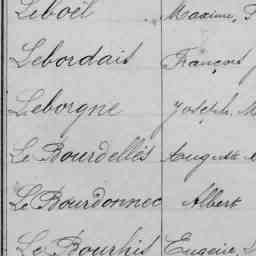 Leboël Maxime,
Lebordais François
Leborgne Joseph. M
Le Bourdellès Auguste
Le Bourdonnec Albert
Le Bourhis Eugène,